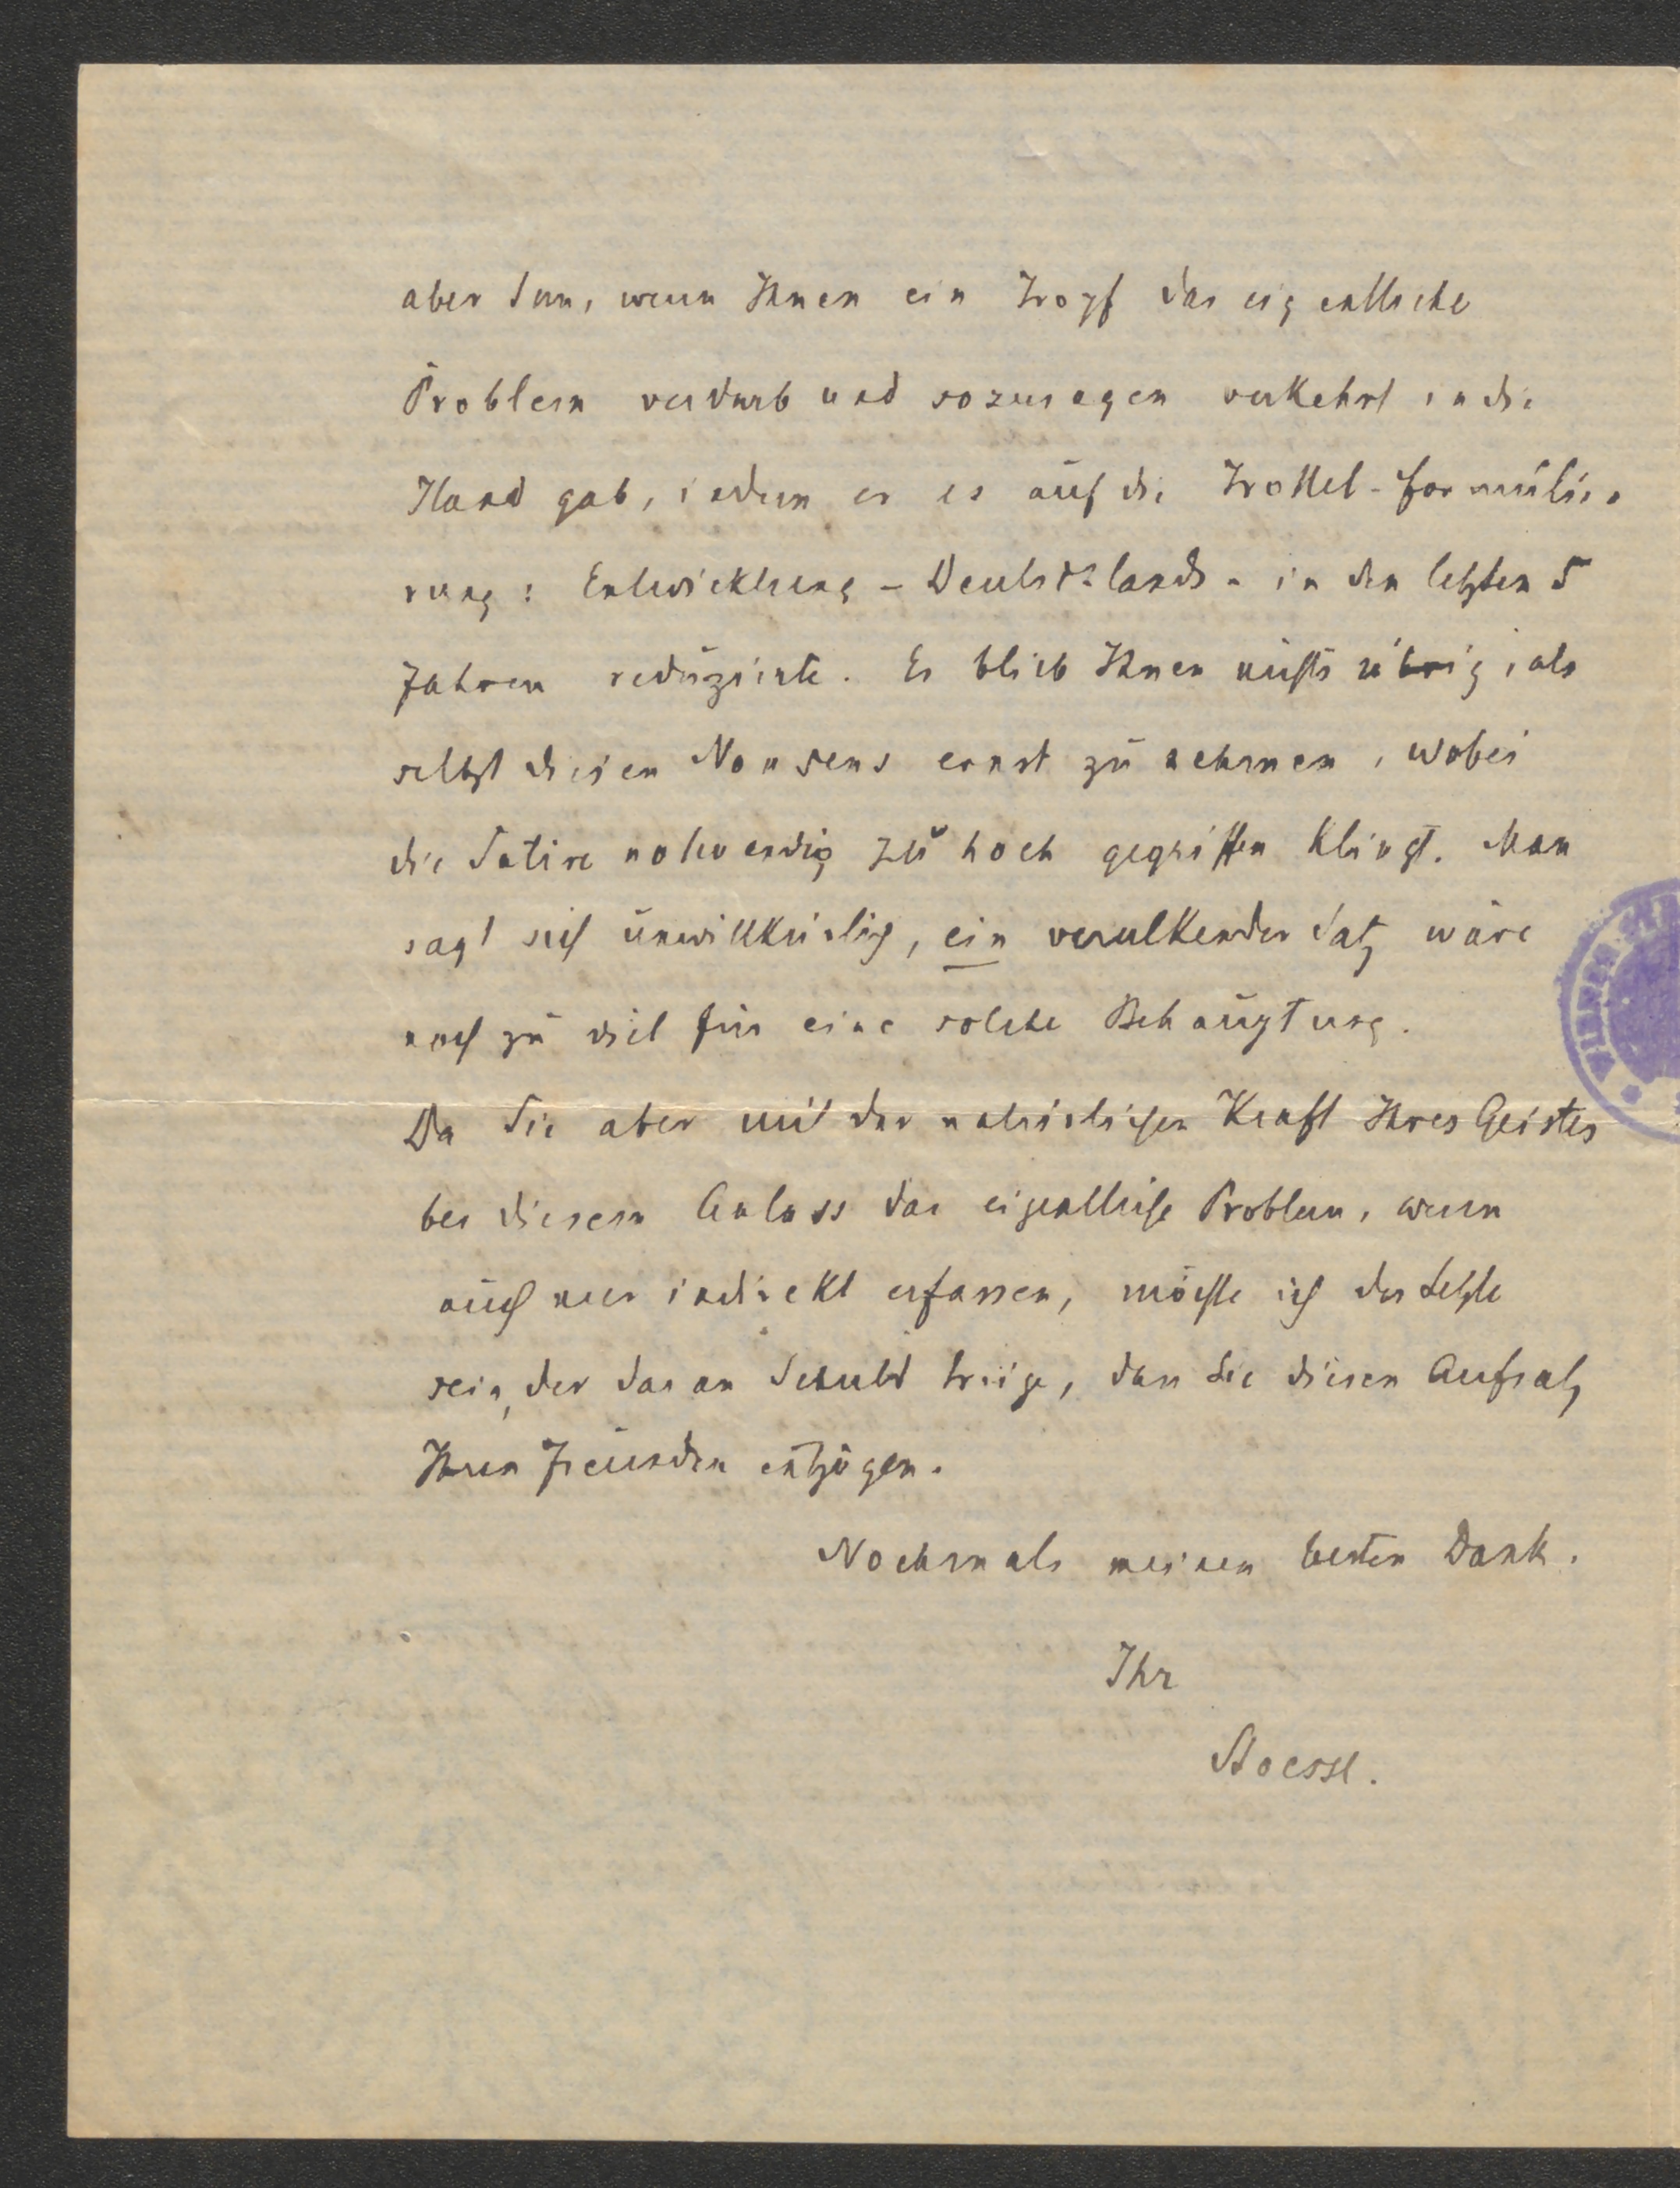 aber dann, wenn Ihnen ein Tropf das eigentliche
Problem verdarb und sozusagen verkehrt in die
Hand gab, indem er es auf die Trottel-formulie-
rung: Entwicklung – Deutschlands – in den letzten 5
Jahren reduzierte. Es blieb Ihnen nichts übrig, als
selbst diesen Nonsens ernst zu nehmen, wobei
die Satire notwendig zu hoch gegriffen klingt. Man
sagt sich unwillkürlich, ein verulkender Satz wäre
noch zu viel für eine solche Behauptung.
Da Sie aber mit der natürlichen Kraft Ihres Geistes
bei diesem Anlass das eigentliche Problem, wenn
auch nur indirekt erfassen, möchte ich der Letzte
sein, der daran Schuld trüge, dass Sie diesen Aufsatz
Ihren Freunden entzögen.
Nochmals meinen besten Dank.
Ihr
Stoessl.
WIENER